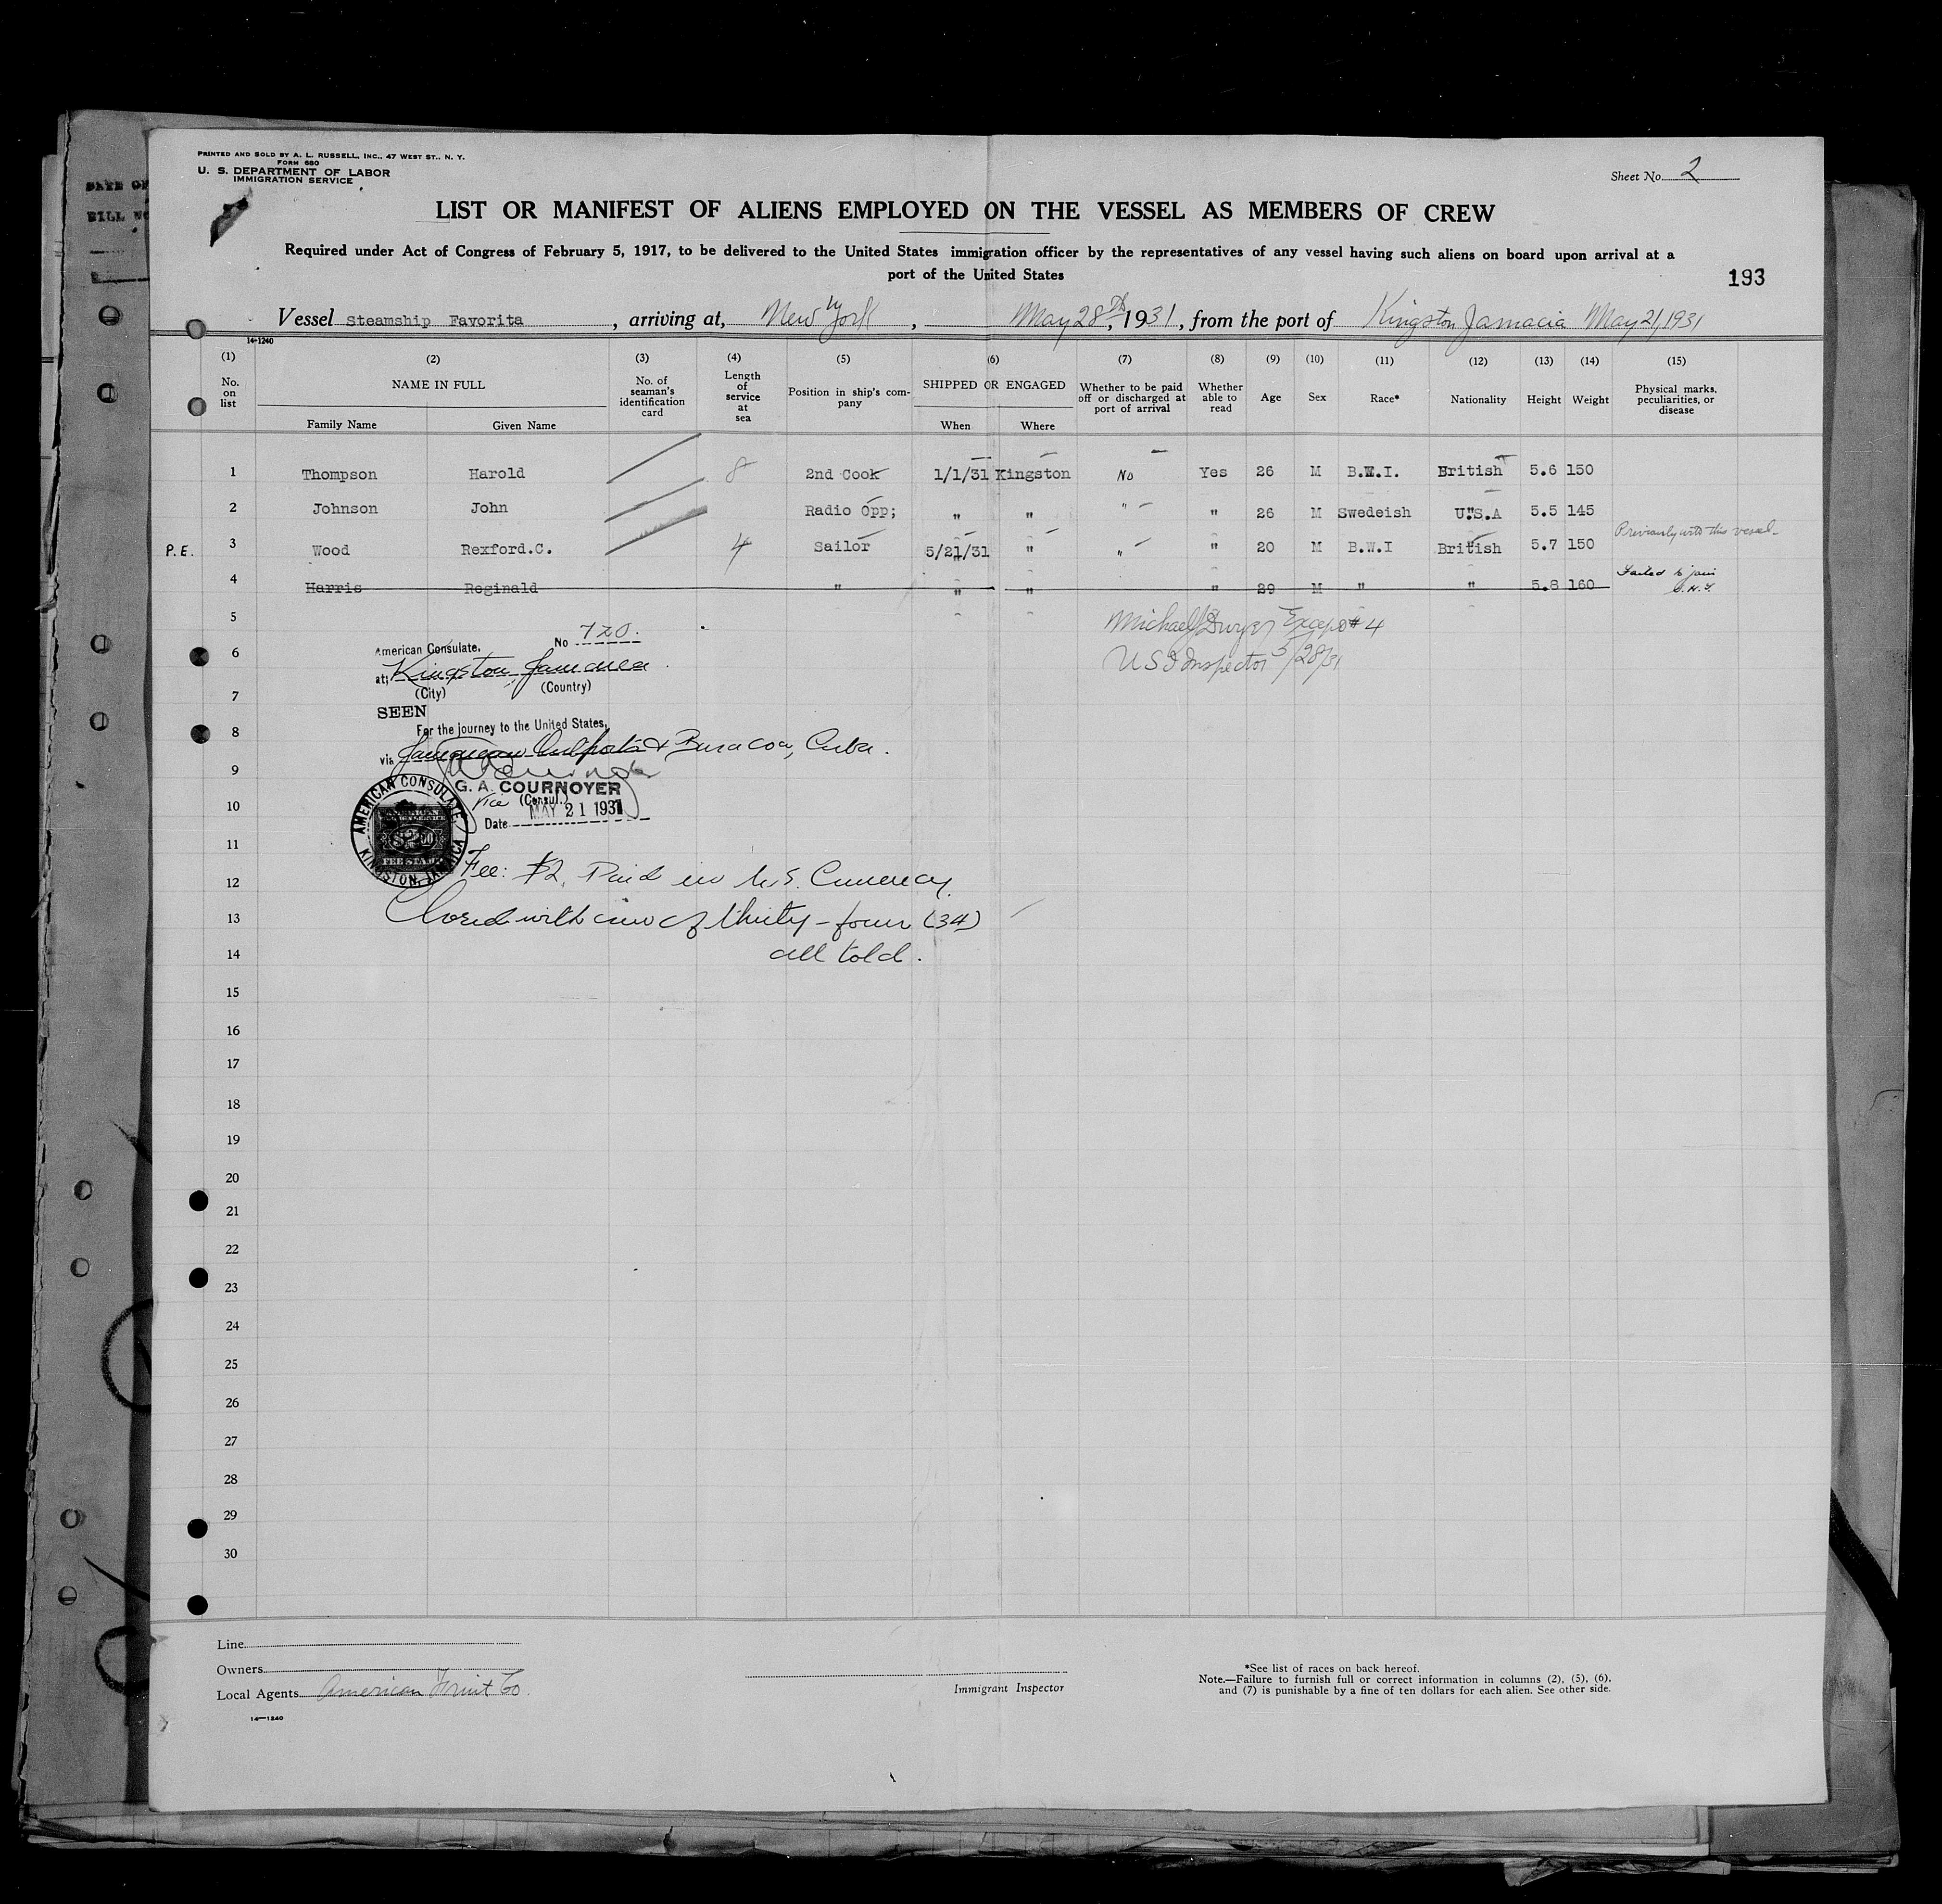 PRINTED AND SOLD BY A. L. RUSSELL, INC., 47 WEST ST., N. Y.
FORM 680
U. S. DEPARTMENT OF LABOR
IMMIGRATION SERVICE
Sheet No. 2
LIST OR MANIFEST OF ALIENS EMPLOYED ON THE VESSEL AS MEMBERS OF CREW
Required under Act of Congress of February 5, 1917, to be delivered to the United States immigration officer by the representatives of any vessel having such aliens on board upon arrival at a
port of the United States
193
Vessel Steamship Favorita, arriving at, New York, May 28th, 1931, from the port of Kingston Jamacia May 21/1931
14-1240
(1) (2) (3) (4) (5) (6) (7) (8) (9) (10) (11) (12) (13) (14) (15)
No. on list
NAME IN FULL
Family Name Given Name
No. of seaman's identification card
Length of service at sea
Position in ship's company
SHIPPED OR ENGAGED
When Where
Whether to be paid off or discharged at port of arrival
Whether able to read
Age
Sex
Race*
Nationality
Height
Weight
Physical marks, peculiarities, or disease
1 Thompson Harold 8 2nd Cook 1/1/31 Kingston No Yes 26 M B.W.I. British 5.6 150
2 Johnson John Radio Opp; " " " " 26 M Swedeish U.S.A 5.5 145
P.E. 3 Wood Rexford.C. 4 Sailor 5/21/31 " " " 20 M B.W.I British 5.7 150 Previously with this vessel
4 Harris Reginald " " " " 29 M " " 5.8 160 Failed to join
5
Michael J Dwyer Except #4
US I Inspector 5/28/31
6
7
8
9
10
11
12
13
14
15
16
17
18
19
20
21
22
23
24
25
26
27
28
29
30
American Consulate, No 720.
at; Kingston, Jamaica
(City) (Country)
SEEN
For the journey to the United States,
via Jamaican Outports & Baracoa, Cuba.
G. A. COURNOYER
Vice (Consul.)
Date MAY 21 1931
AMERICAN CONSULATE
KINGSTON, JAMAICA
FEE STAMP
Fee: $2. Paid in U.S. Currency.
Closed with crew of thirty-four (34)
all told.
Line
Owners
Local Agents American Fruit Co.
14-1240
Immigrant Inspector
*See list of races on back hereof.
Note.—Failure to furnish full or correct information in columns (2), (5), (6),
and (7) is punishable by a fine of ten dollars for each alien. See other side.